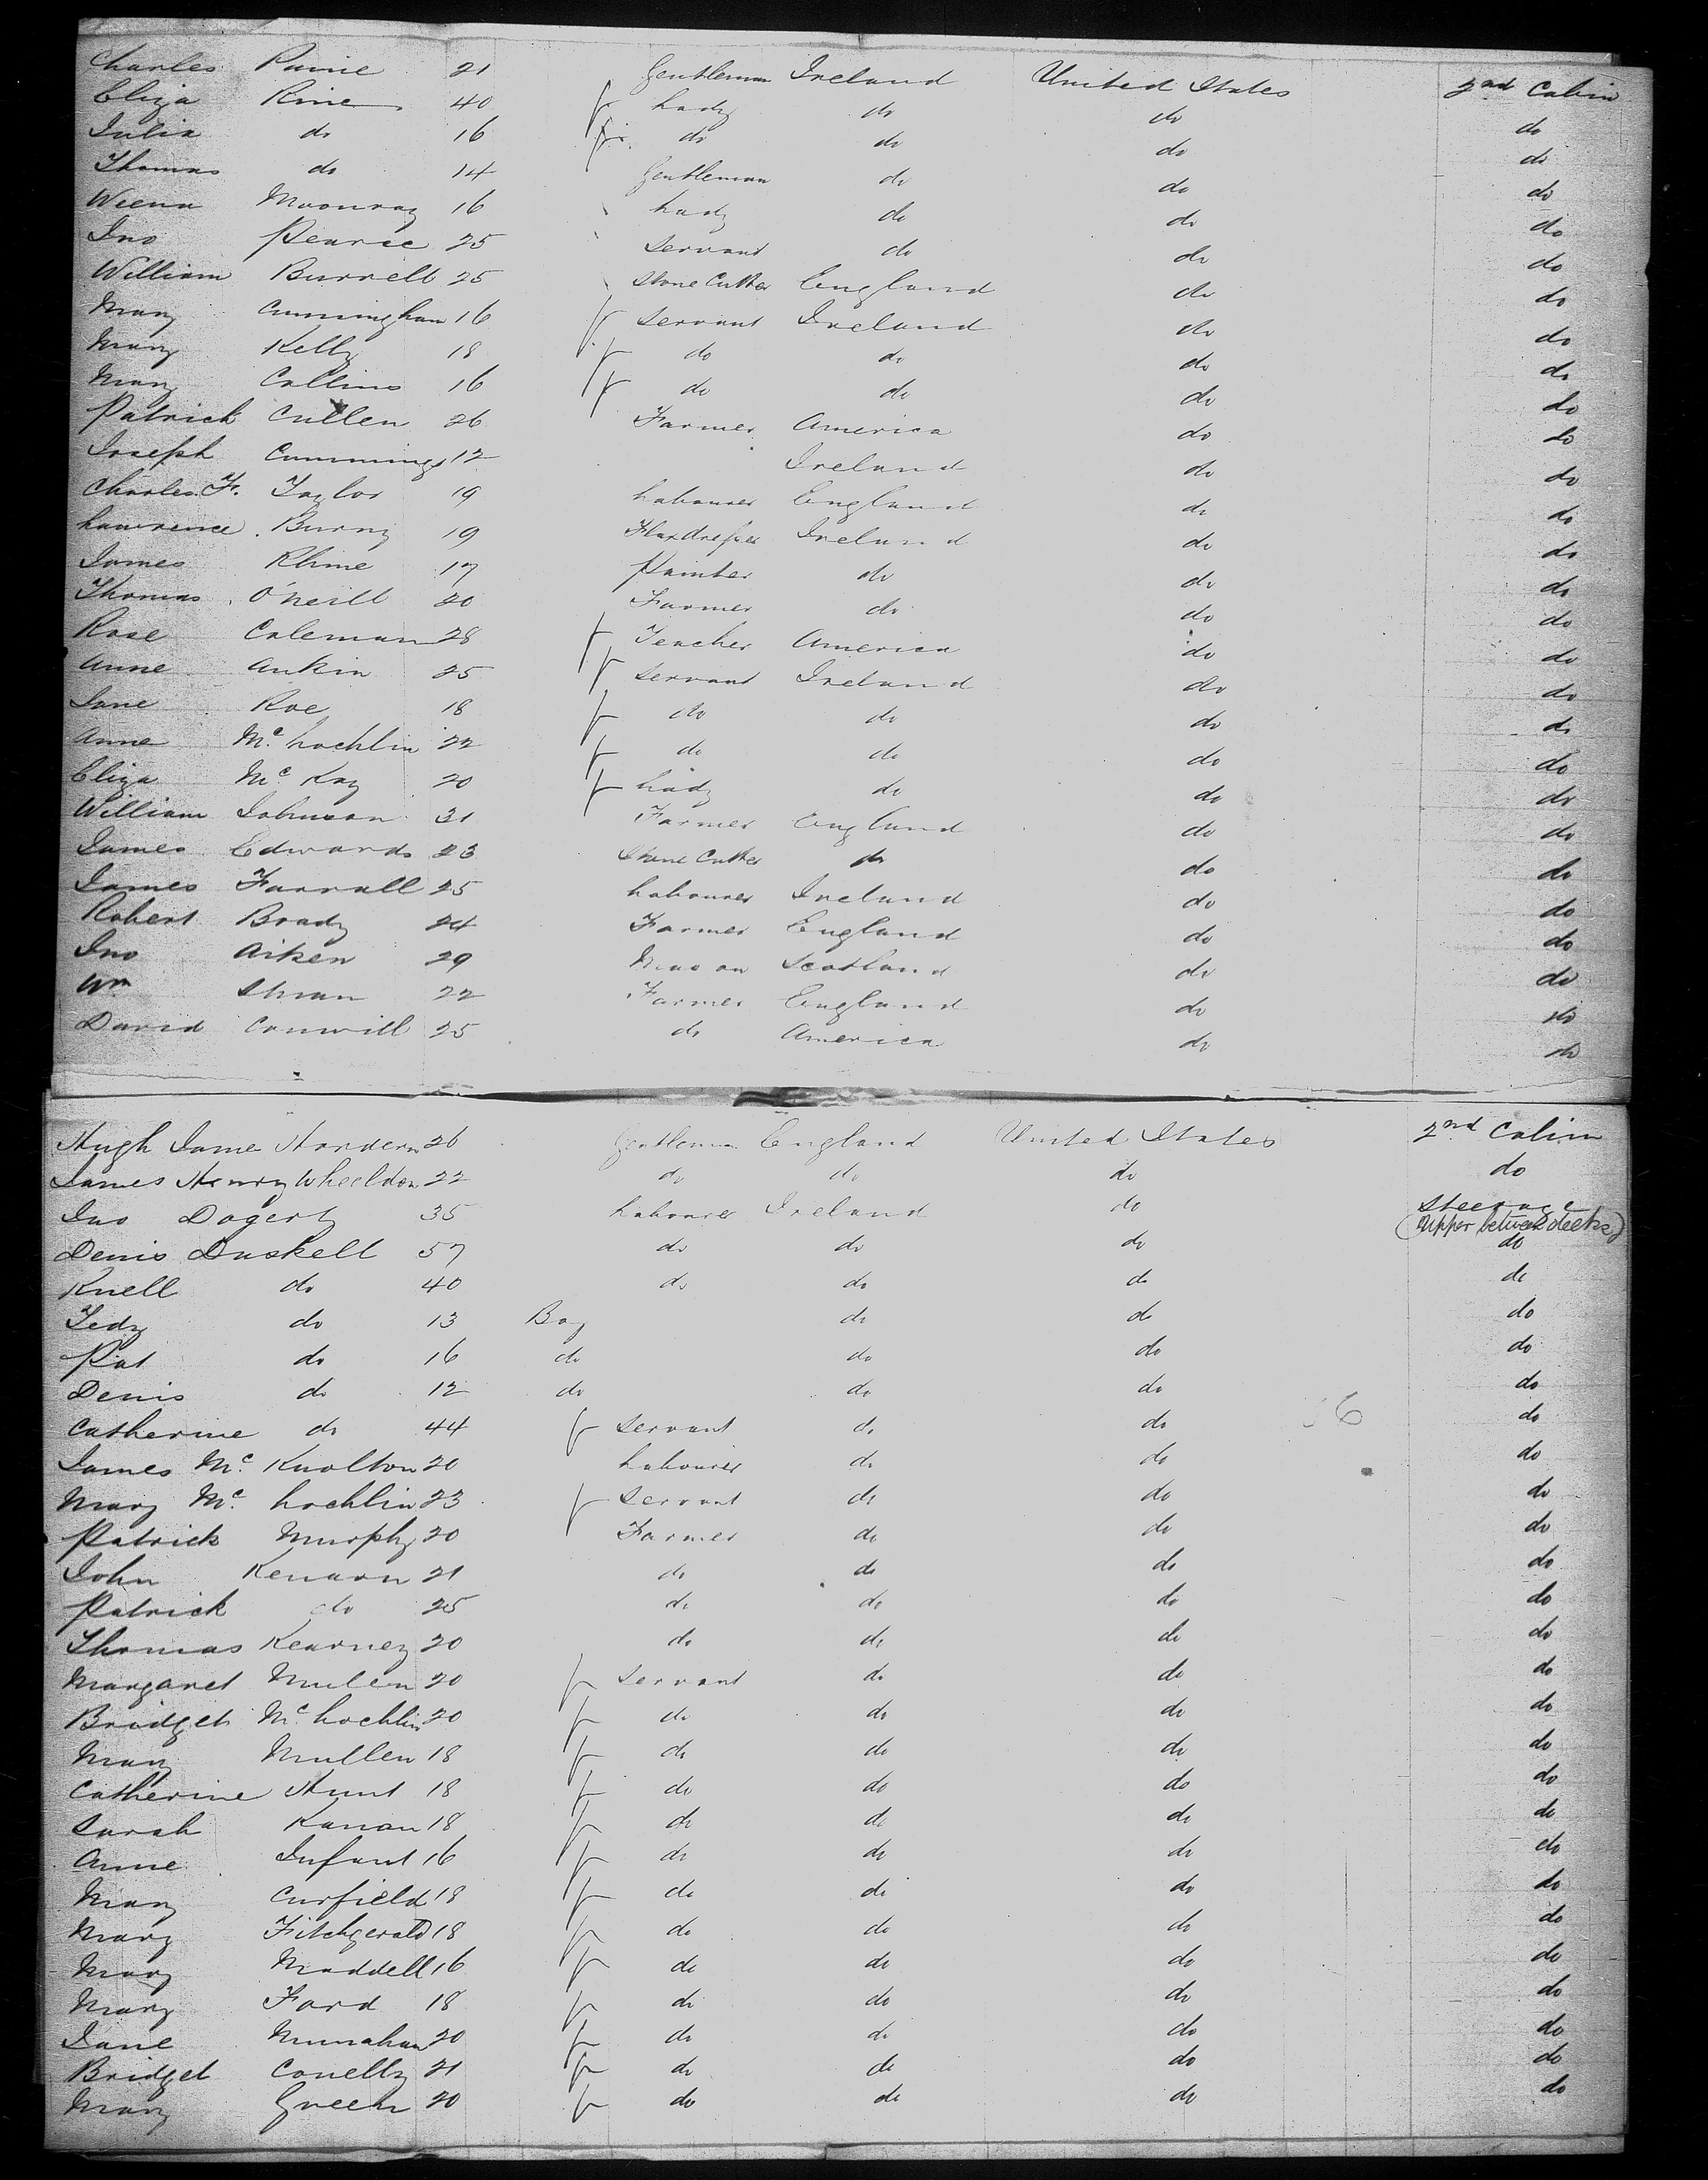 Charles Paine 21 Gentleman Ireland United States 2nd Cabin
Eliza Rine 40 f Lady do do do
Julia do 16 f do do do do
Thomas do 14 Gentleman do do do
Weena Moonray 16 Lady do do do
Jno Pearce 25 Servant do do do
William Burrell 25 Stone Cutter England do do
Mary Cunningham 16 f Servant Ireland do do
Mary Kelly 18 f do do do do
Mary Collins 16 f do do do do
Patrick Cullen 26 Farmer America do do
Joseph Cummings 12 Ireland do do
Charles F. Taylor 19 Labourer England do do
Lawrence Burny 19 Flaxdresser Ireland do do
James Rhine 17 Painter do do do
Thomas O'Neill 20 Farmer do do do
Rose Coleman 28 f Teacher America do do
Anne Ankin 25 f Servant Ireland do do
Jane Roe 18 f do do do do
Anne Mc Lochlin 22 f do do do do
Eliza Mc Kay 20 f Lady do do do
William Johnson 31 Farmer England do do
James Edwards 23 Stone Cutter do do do
James Farrall 25 Labourer Ireland do do
Robert Brady 24 Farmer England do do
Jno Aiken 29 Mason Scotland do do
Wm Shran 22 Farmer England do do
David Conwill 25 do America do do
Hugh Jame Hordern 26 Gentleman England United States 2nd Cabin
James Henry Wheeldon 22 do do do do
Jno Dogerty 35 Labourer Ireland do Steerage (upper between decks)
Denis Duskell 57 do do do do
Knell do 40 do do do do
Tedy do 13 Boy do do do
Pat do 16 do do do do
Denis do 12 do do do do
Catherine do 44 f Servant do do do
James Mc Knolton 20 Labourer do do do
Mary Mc Lochlin 23 f Servant do do do
Patrick Murphy 20 Farmer do do do
John Kenarn 21 do do do do
Patrick do 25 do do do do
Thomas Kearney 20 do do do do
Margaret Mulen 20 f Servant do do do
Bridget Mc Lochlin 20 f do do do do
Mary Mullen 18 f do do do do
Catherine Hunt 18 f do do do do
Sarah Kanan 18 f do do do do
Anne Infant 16 f do do do do
Mary Curfield 18 f do do do do
Mary Fitchgerald 18 f do do do do
Mary Maddell 16 f do do do do
Mary Ford 18 f do do do do
Jane Munahan 20 f do do do do
Bridget Conelly 21 f do do do do
Mary Green 20 f do do do do